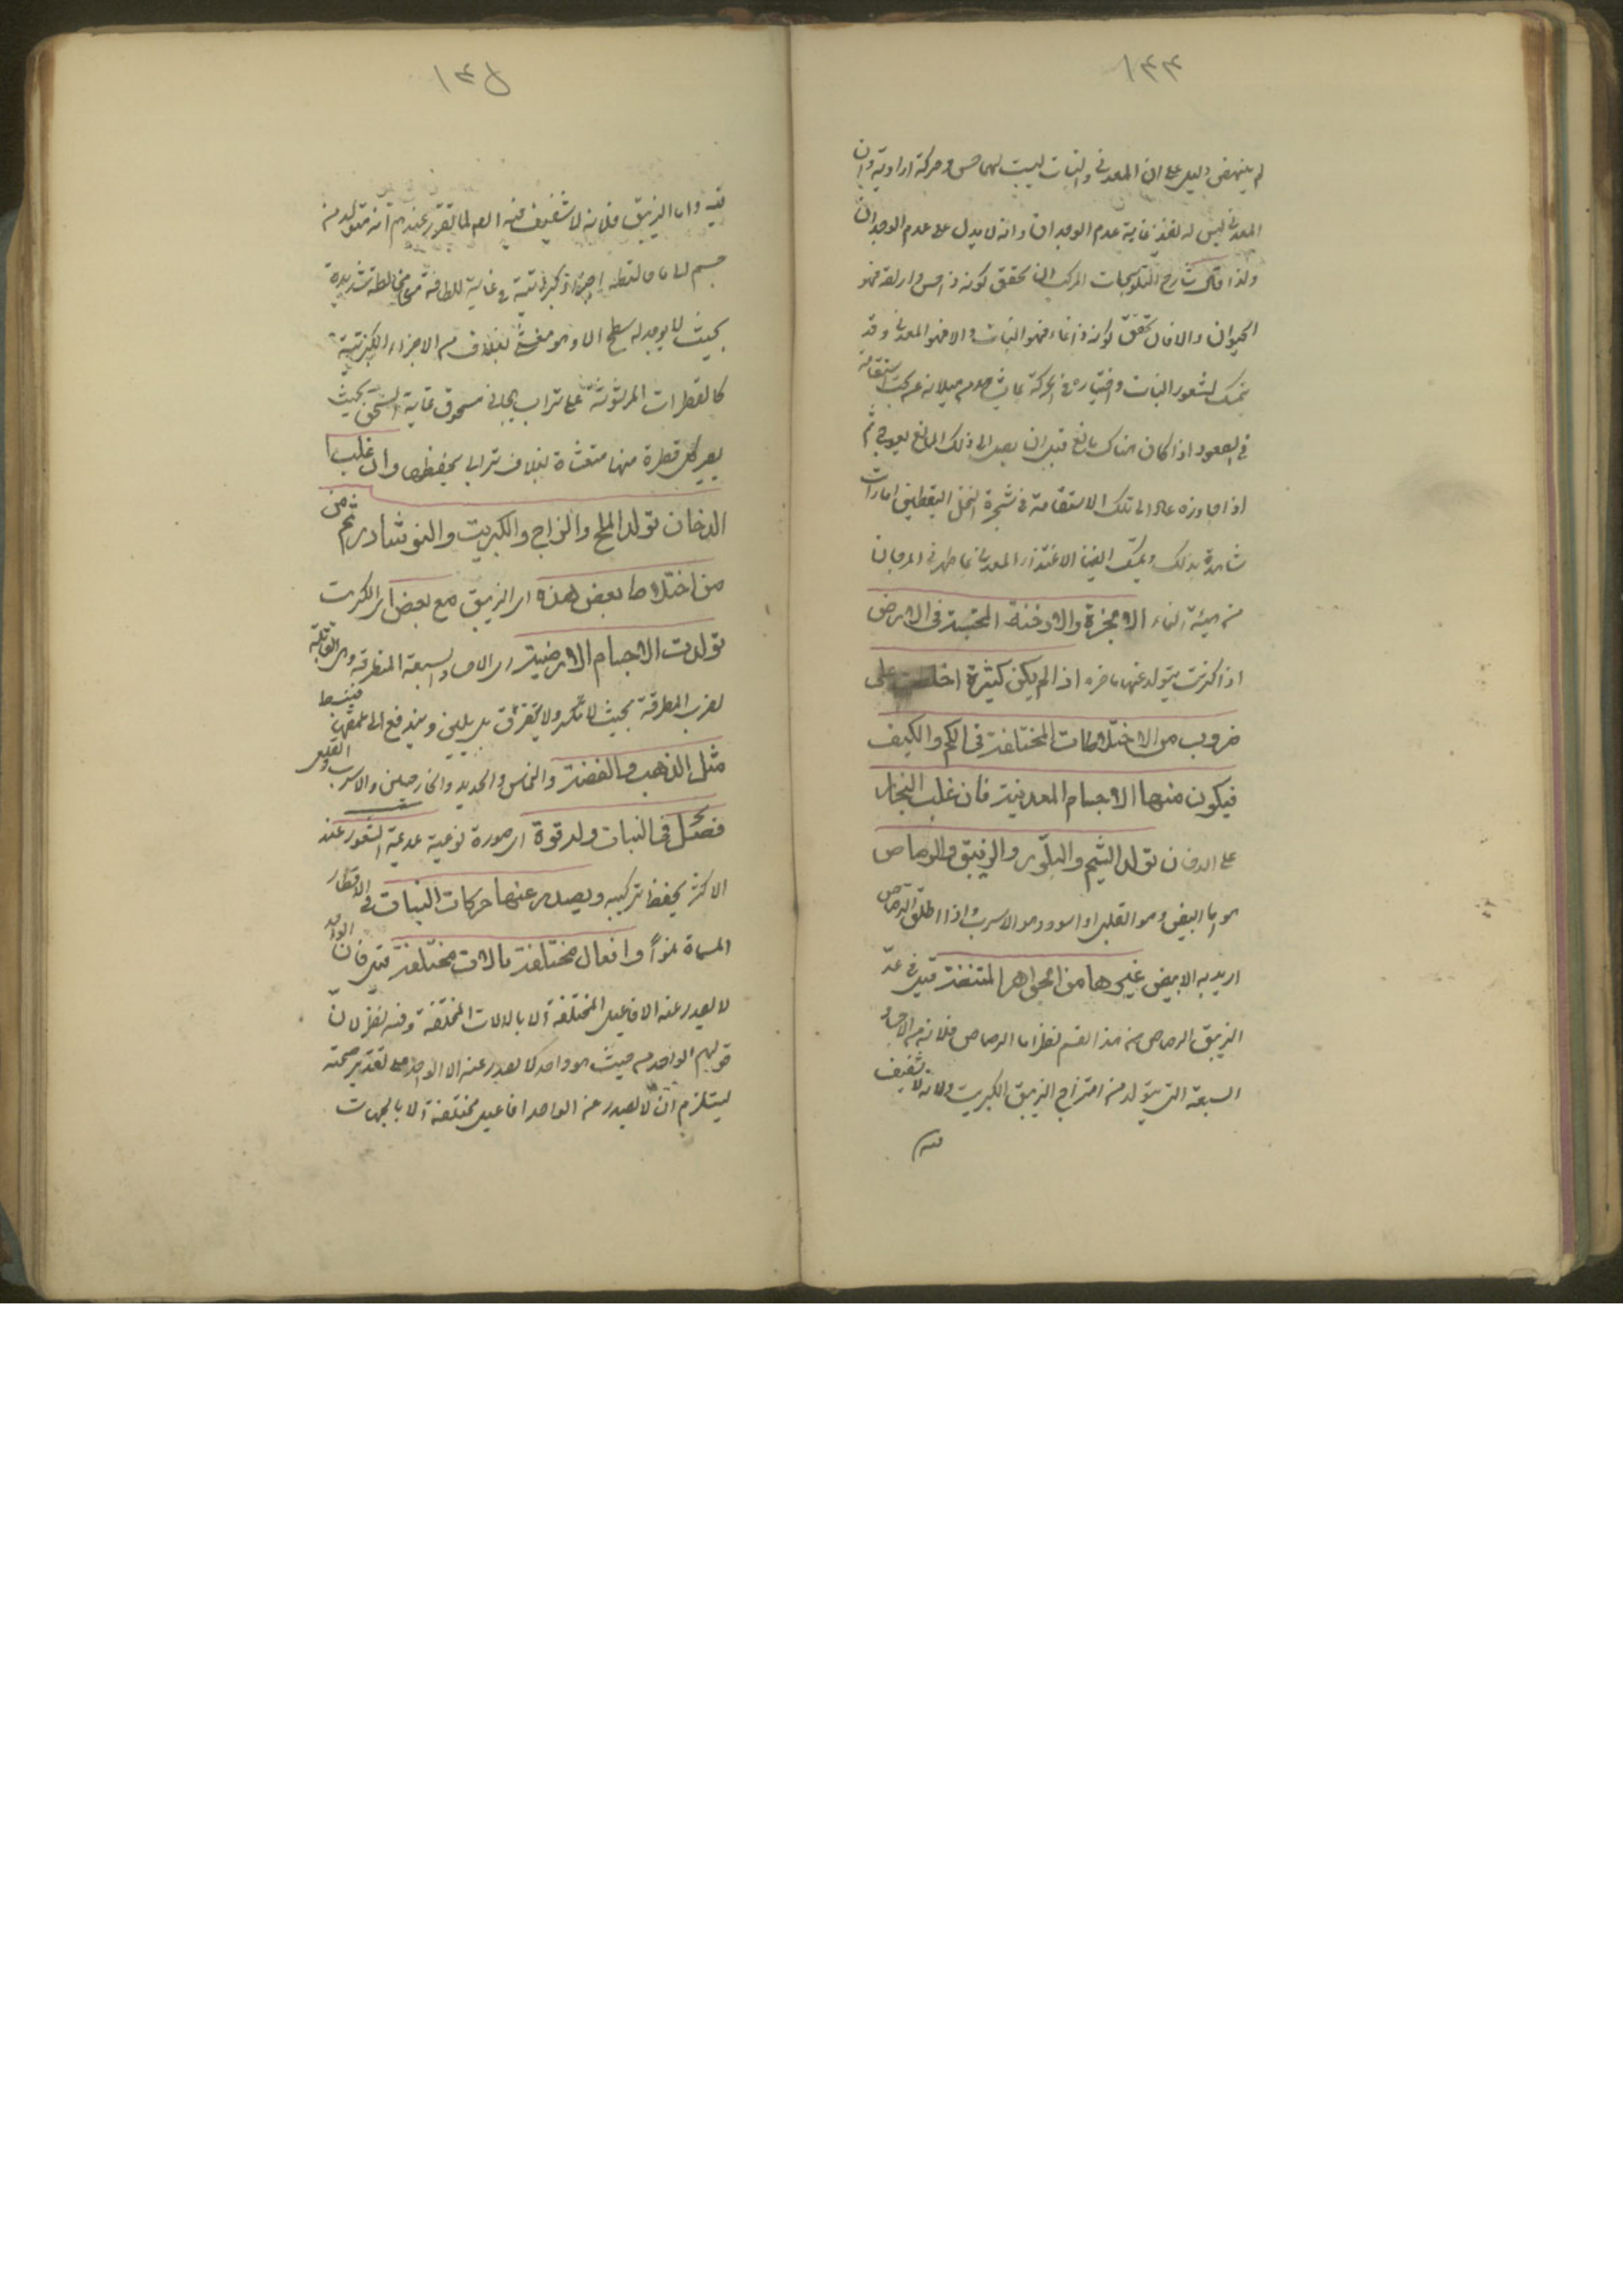 ١٣٤
لم ينهض دليل على ان المعدنى والنبات ليست لهما حس وحركة ارادية وان
المعدنى ليس له تغذ غاية عدم الوجدان وانه لا يدل على عدم الوجدان
ولذا قال شارح التلويحات المركب ان تحقق كونه ذا حس وارادة فهو
الحيوان والا فان تحقق كونه ذا نماء فهو النبات والا فهو المعدنى وقد
يتمسك لشعور النبات واختياره فى الحركة بما يشاهد من ميلانه عن سمت استقامة
فى الصعود اذا كان هناك مانع قبل ان يصل الى ذلك المانع يعوج ثم
اذا جاوزه عاد الى تلك الاستقامة فى شجرة النخل اليقطين امارات
شاهدة بذلك ويمكن ايضا الاغتذاء المعدنى بما ظهر فى المرجان
من هيئة النماء الابخرة والادخنة المحتبسة فى الارض
اذا كثرت يتولد عنها ما مر واذا لم يكن كثيرة اختلطت على
ضروب من الاختلاطات المختلفة فى الكم والكيف
فيكون منها الاجسام المعدنية فان غلب البخار
على الدخان تولد اليشم والبلور والزيبق والرصاص
هو اما ابيض وهو القلعى او اسود وهو الاسرب واذا اطلق الرصاص
اريد به الابيض غيرها من الجواهر المشفة قيل فى عد
الزيبق الرصاص من هذا القسم نظر اما الرصاص فلانه من الاجساد
السبعة التى يتولد من امتزاج الزيبق الكبريت ولانه لا شفيف
فيه
١٣٥
فيه واما الزيبق فلانه لا شفيف فيه ايضا لما تقرر عندهم انه متولد من
جسم مائى خالطه اجزاء كبريتية فى غاية اللطافة مخالطة شديدة
بحيث لا يوجد له سطح الا وهو مغشى بغلاف من الاجزاء الكبريتية
كالقطرات المرشوشة على تراب هبائى مسحوق غاية السحق بحيث
يصير كل قطرة منها مغشاة بغلاف ترابى يحفظها وان غلب
الدخان تولد الملح والزاج والكبريت والنوشادر ثم من
من اختلاط بعض هذه اى الزيبق مع بعض اى الكبريت
تولدت الاجسام الارضية اى الاجساد السبعة المنطرقة وهى القابلة
لضرب المطرقة بحيث لا تنكسر ولا تتفرق بل يلين ويندفع الى عمقها فينبسط
مثل الذهب والفضة والنحاس والحديد والخارصينى والاسرب والقلعى
فصل فى النبات وله قوة اى صورة نوعية عديمة الشعور عند
الاكثر يحفظ تركيبه ويصدر عنها حركات النبات فى الاقطار
المسماة نموا وافعال مختلفة بالات مختلفة قيل فان الواحد
لا يصدر عنه الافاعيل المختلفة الا بالالات المختلفة وفيه نظر لان
قولهم الواحد من حيث هو واحد لا يصدر عنه الا الواحد على تقدير صحته
يستلزم ان لا يصدر عن الواحد افاعيل مختلفة الا بالجهات